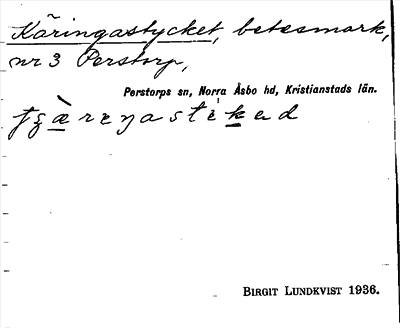 Käringastycket, betesmark,
nr 3 Perstorp,
Perstorps sn, Norra Åsbo hd, Kristianstads län.
BIRGIT LUNDKVIST 1936.